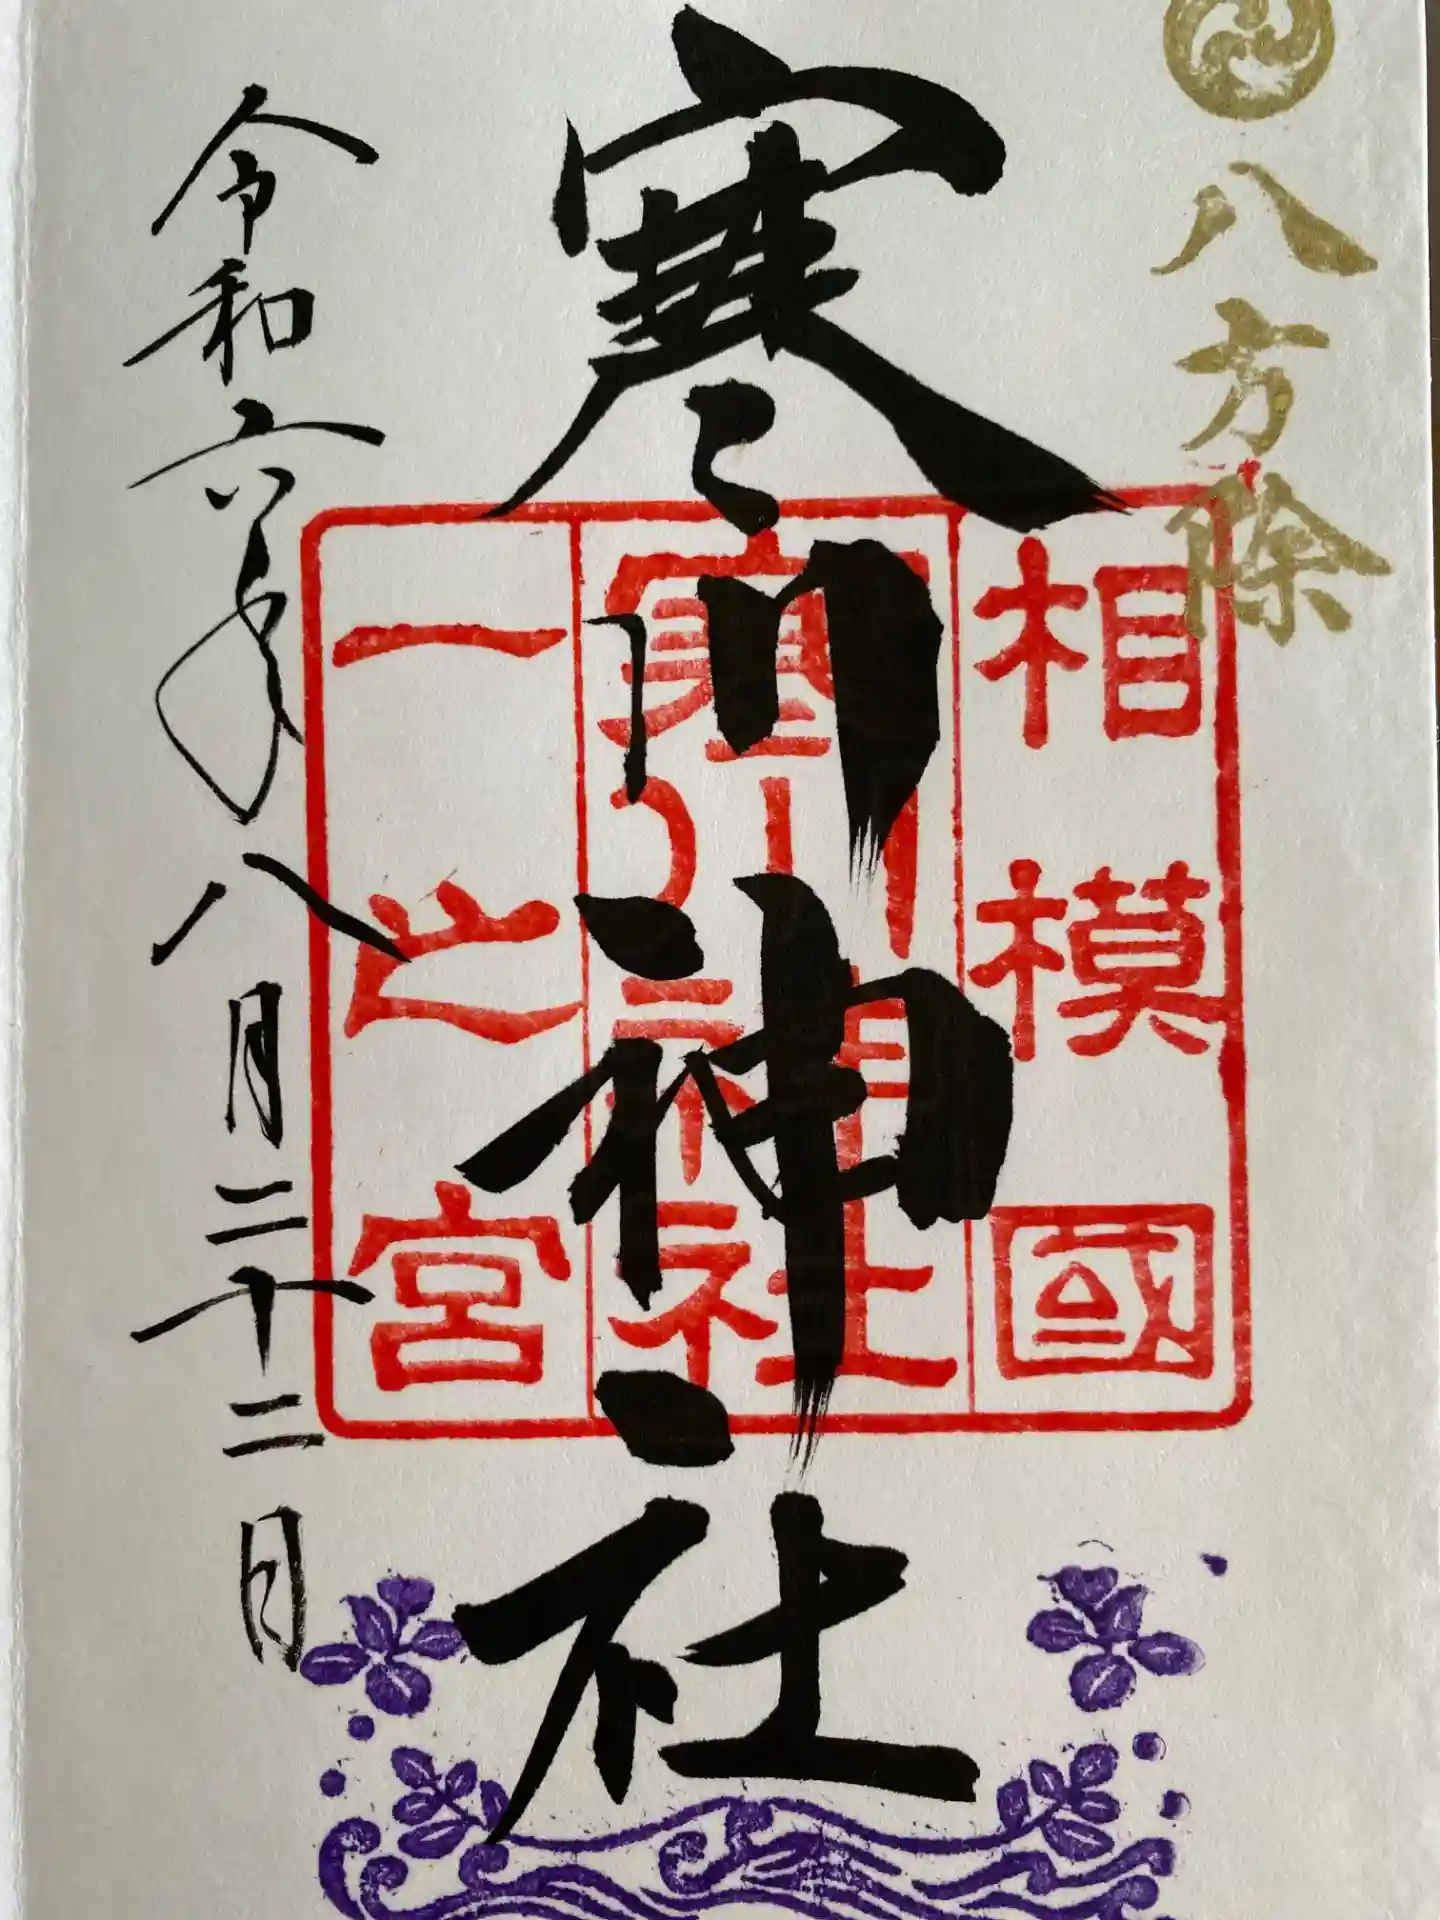 八方除
寒川神社
相模國
寒川神社
一之宮
令和六年八月二十二日